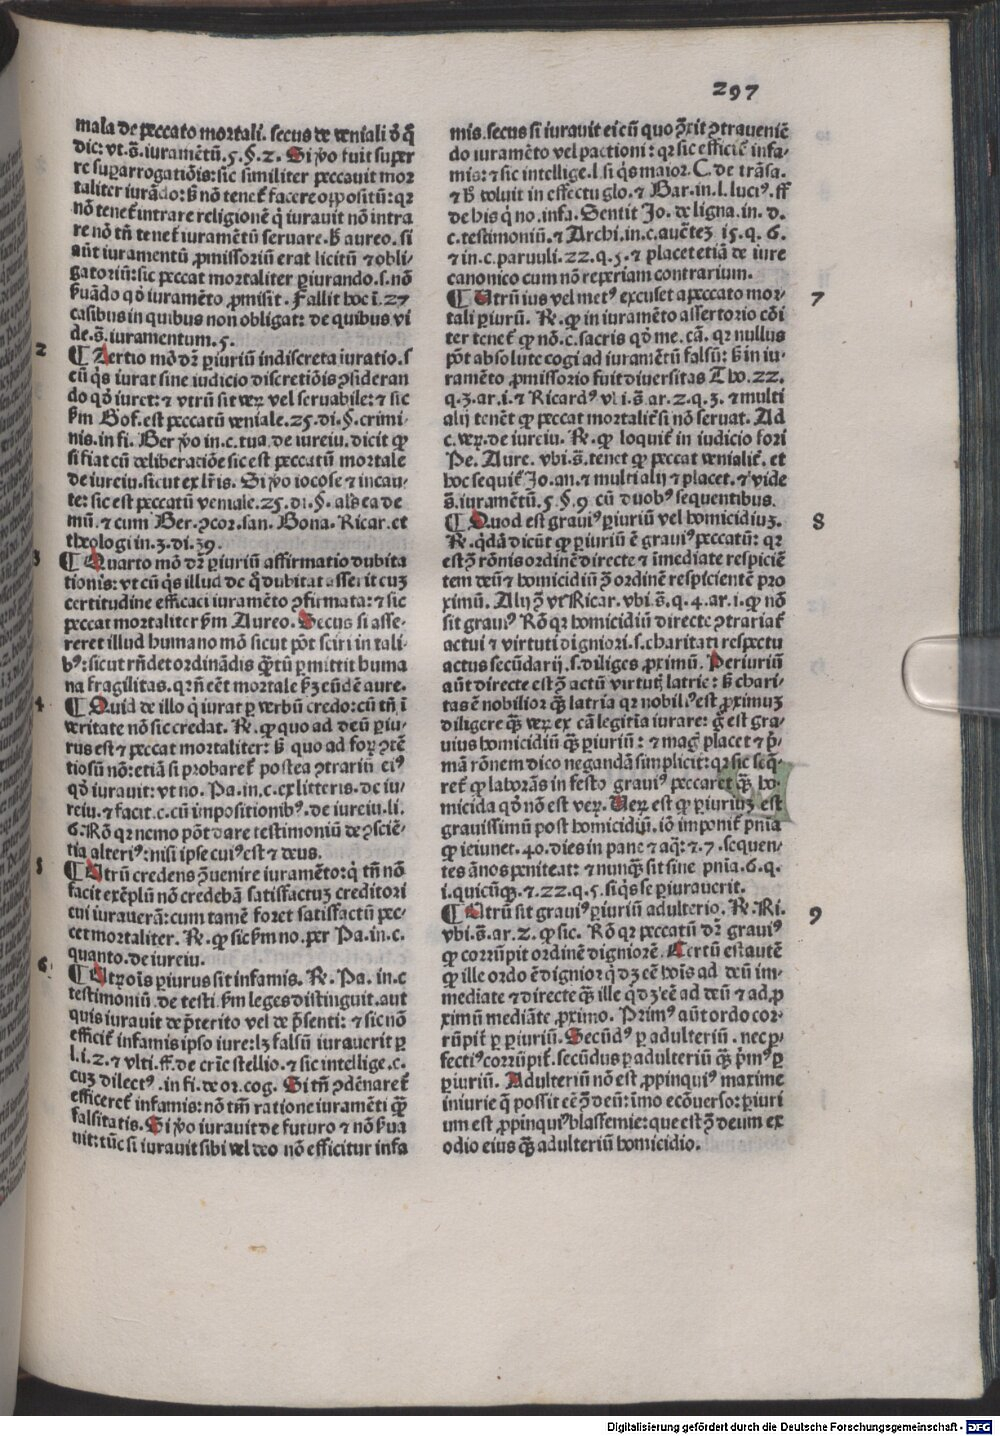 297
mala de peccato mortali. secus de veniali ō q̄
dic: vt.s̄.iuramētū.5.§.2. Si ỽo fuit super
re suꝑarrogatiōis: sic similiter peccauit mor
taliter iurādo: s̄ nō tenet᷑ facere oppositū: qꝛ
nō tenet᷑ intrare religionē q̇ iurauit nō intra
re nō tñ tenet᷑ iuramētū seruare. s̄ aureo. si
aūt iuramentū ꝓmissoriū erat licitū ⁊ obli
gatoriū: sic peccat mortaliter ꝑiurando.s.nō
ẜuādo qd̓ iuramēto ꝓmisit. Fallit hoc ī.27
casibus in quibus non obligat: de quibus vi
de.s̄.iuramentum.5.
2
¶ Tertio mō dr̄ ꝑiuriū indiscreta iuratio.s
cū q̇s iurat sine iudicio discretiōis ꝯsideran
do qd̓ iuret: ⁊ vtrū sit veꝝ vel seruabile: ⁊ sic
ẜm Gof. est peccatū veniale.25.di.§.crimi
nis.in fi. Ber ỽo in.c.tua.de iureiu.dicit ꝙ
si fiat cū deliberatiōe sic est peccatū mortale
de iureiu.sicut ex lr̄is. Si ỽo iocose ⁊ incau
te: sic est peccatū veniale.25.di.§.als̄ ea de
mū. ⁊ cum Ber.ꝯcor.san. Bona. Ricar. et
theologi in.3.di.39.
3
¶ Quarto mō dr̄ ꝑiuriū affirmatio dubita
tionis: vt cū q̇s illud de q̊ dubitat asserit cuꝫ
certitudine efficaci iuramēto ꝯfirmata: ⁊ sic
peccat mortaliter ẜm Aureo. Secus si asse-
reret illud humano mō sicut pōt sciri in tali-
bꝰ: sicut rñdet ordinādis q̄tū ꝑmittit huma
na fragilitas. qꝛ ñ eēt mortale ẜꝫ eūdē aure.
4
¶ Quid de illo q̇ iurat ꝑ verbū credo: cū tñ ī
veritate nō sic credat. R̄. ꝙ quo ad deū ꝑiu-
rus est ⁊ peccat mortaliter: s̄ quo ad foꝝ ꝯtē
tiosū nō: etiā si probaret᷑ postea ꝯtrariū eiꝰ
qd̓ iurauit: vt no. Pa. in.c.ex litteris.de iu-
reiu. ⁊ facit.c.cū impositionibꝰ.de iureiu.li.
6. Rō qꝛ nemo pōt dare testimoniū de ꝯsciē-
tia alteriꝰ: nisi ipse cuiꝰ est ⁊ deus.
5
¶ Utrū credens ꝯuenire iuramēto: q̇ tñ nō
facit exēplū nō credebā satisfactuꝫ creditori
cui iurauerā: cum tamē foret satisfactū pec-
cet mortaliter. R̄. ꝙ sic ẜm no. per Pa. in.c.
quanto.de iureiu.
6
¶ Utꝝ oīs ꝑiurus sit infamis. R̄. Pa. in.c
testimoniū.de testi. ẜm leges distinguit. aut
quis iurauit de p̄terito vel de p̄senti: ⁊ sic nō
efficit᷑ infamis ipso iure: lꝫ falsū iurauerit ꝑ
l.i.2. ⁊ vlti.ff.de cri᷑c stellio. ⁊ sic intellige.c.
cuꝫ dilectꝰ.in fi.de or.cog. Si tñ ꝯdēnaret᷑
efficeret᷑ infamis: nō tm̄ ratione iuramēti q̄ꝫ
falsitatis. Si ỽo iurauit de futuro ⁊ nō ẜua
uit: tūc si iurauit sibi vel deo nō efficitur infa
mis. secus si iurauit ei cū quo ꝯ̄xit ꝯtrauenīē
do iuramēto vel pactioni: qꝛ sic efficit᷑ infa-
mis: ⁊ sic intellige.l.si q̇s maior. C. de trāsa.
⁊ h̄ voluit in effectu glo. ⁊ Bar. in.l.luciꝰ.ff
de his q̇ no.infa. Sentit Jo. de ligna. in.d.
c.testimoniū. ⁊ Archi. in.c.auētez 15.q.6.
⁊ in.c.paruuli.22.q.5. ⁊ placet etiā de iure
canonico cum nō reperiam contrarium.
7
¶ Utrū ius vel metꝰ excuset a peccato mor-
tali ꝑiurū. R̄. ꝙ in iuramēto assertorio cōi
ter tenet᷑ ꝙ nō.c.sacris qd̓ me.cā. qꝛ nullus
pōt absolute cogi ad iuramētū falsū: s̄ in iu-
ramēto ꝓmissorio fuit diuersitas Tho.22.
q.3.ar.i. ⁊ Ricardꝰ vbi.s̄.ar.2.q.3. ⁊ multi
alij tenēt ꝙ peccat mortalit᷑ si nō seruat. Ad
c.veꝝ.de iureiu. R̄. ꝙ loquit᷑ in iudicio fori
Pe. Aure. vbi.s̄.tenet ꝙ peccat venialit᷑. et
hoc sequit᷑ Jo.an. ⁊ multi alij ⁊ placet. ⁊ vide
s̄.iuramētū.5.§.9 cū duobꝰ sequentibus.
8
¶ Quod est grauiꝰ ꝑiuriū vel homicidiuꝫ.
R̄. q̇dā dicūt ꝙ ꝑiuriū ē grauiꝰ peccatū: qꝛ
est ꝯ̄ rōnis ordinē directe ⁊ īmediate respiciē
tem deū ⁊ homicidiū ꝯ̄ ordinē respicientē pro
ximū. Alij ꝯ̄ vt Ricar. vbi.s̄.q.4.ar.i. ꝙ nō
sit grauiꝰ Rō qꝛ homicidiū directe ꝯtrariat᷑
actui ⁊ virtuti digniori.s.charitati respectu
actus secūdarij.s.diliges ꝓximū. Periuriū
aūt directe est ꝯ̄ actū virtutꝭ latrie: s̄ chari-
tas ē nobilior q̄ꝫ latria qꝛ nobiliꝰ est ꝓximuꝫ
diligere q̄ꝫ veꝝ ex cā legitīa iurare: g̊ est gra-
uius homicidiū q̄ꝫ ꝑiuriū: ⁊ magꝭ placet ⁊ p̄-
mā rōnem dico negandā simplicit᷑: qꝛ sic seq̄-
ret᷑ ꝙ laborās in festo grauiꝰ peccaret q̄ꝫ ho-
micida qd̓ nō est veꝝ. Ueꝝ est ꝙ ꝑiuriuꝫ est
grauissimū post homicidiū. iō imponit᷑ pnīa
ꝙ ieiunet.40.dies in pane ⁊ aq̄: ⁊.7.sequen-
tes ānos peniteat: ⁊ nunq̄ꝫ sit sine pnīa.6.q.
i.quicūqꝫ. ⁊.22.q.5.si q̇s se ꝑiurauerit.
9
¶ Utrū sit grauiꝰ ꝑiuriū adulterio. R̄. Ri.
vbi.s̄.ar.2. ꝙ sic. Rō qꝛ peccatū dr̄ grauiꝰ
ꝙ corrūpit ordinē digniorē. Certū est autē
ꝙ ille ordo ē dignior q̇ dꝫ eē hoīs ad deū im-
mediate ⁊ directe q̄ꝫ ille q̇ dꝫ eē ad deū ⁊ ad ꝓ
ximū mediāte ꝓximo. Primꝰ aūt ordo cor-
rūpit᷑ ꝑ ꝑiuriū. Secūdꝰ ꝑ adulteriū. nec ꝑ-
fectiꝰ corrūpit᷑ secūdus ꝑ adulteriū q̄ꝫ p̄mꝰ ꝑ
ꝑiuriū. Adulteriū nō est ꝓpinquiꝰ maxime
iniurie q̄ possit eē ꝯ̄ deū: īmo ecōuerso: ꝑiuri
um est ꝓpinquiꝰ blasfemie: que est ꝯ̄ deum ex
odio eius q̄ꝫ adulteriū homicidio.
Digitalisierung gefördert durch die Deutsche Forschungsgemeinschaft - DFG